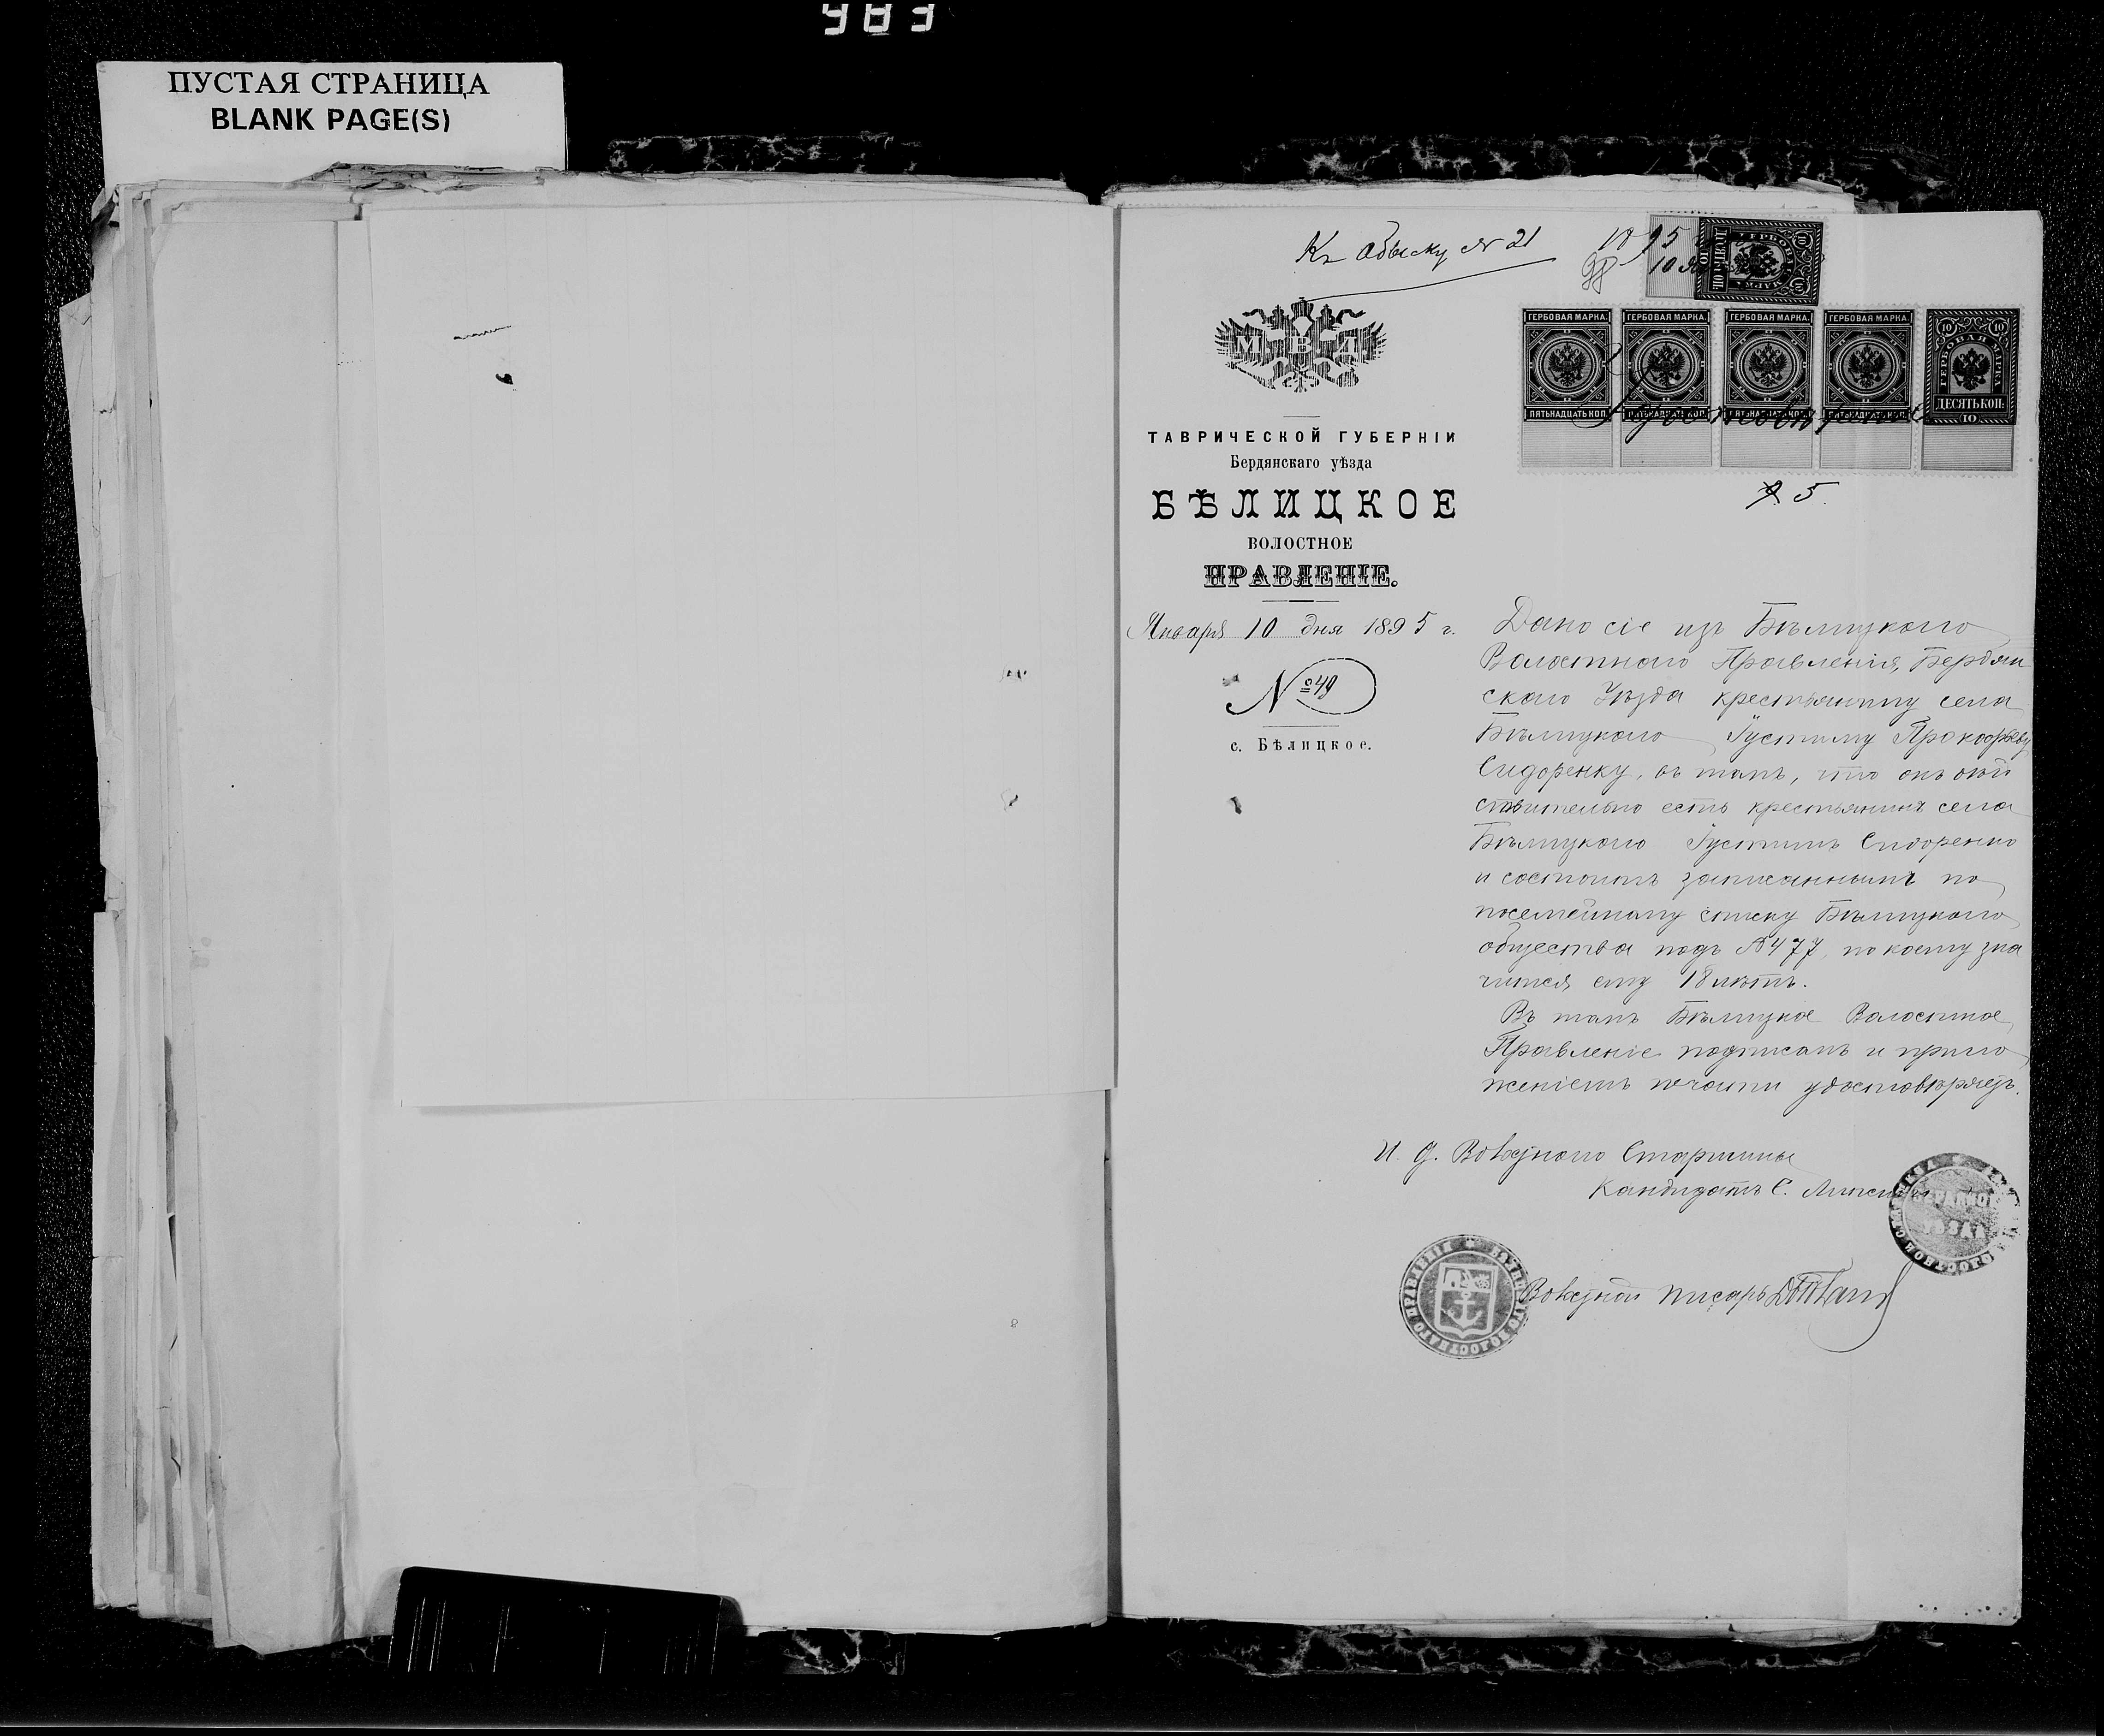 983
ПУСТАЯ СТРАНИЦА
BLANK PAGE(S)
Къ обыску № 21
1895
10
М В Д
ГЕРБОВАЯ МАРКА.
ГЕРБОВАЯ МАРКА.
ГЕРБОВАЯ МАРКА.
ГЕРБОВАЯ МАРКА.
10 10
ГЕРБОВАЯ МАРКА
ПЯТЬНАДЦАТЬ КОП.
ПЯТЬНАДЦАТЬ КОП.
ПЯТЬНАДЦАТЬ КОП.
ПЯТЬНАДЦАТЬ КОП.
ДЕСЯТЬ КОП.
10
5.
ТАВРИЧЕСКОЙ ГУБЕРНІИ
Бердянскаго уѣзда
БѢЛИЦКОЕ
ВОЛОСТНОЕ
ПРАВЛЕНІЕ.
Января 10 дня 1895 г.
№ 49
с. Бѣлицкое.
Дано сіе изъ Бѣлицкого
Волостного Правленія, Бердян
скаго Уѣзда крестьянину села
Бѣлицкого Іустину Прокофьеву
Сидоренку, въ томъ, что онъ дѣй
ствительно есть крестьянинъ села
Бѣлицкого Іустинъ Сидоренко
и состоитъ записаннымъ по
посемейному списку Бѣлицкого
общества подъ № 477, по коему зна
чится ему 18 лѣтъ.
Въ томъ Бѣлицкое Волостное
Правленіе подписомъ и прило
женіемъ печати удостовѣряетъ.
И. д. Волостного Старшины
Кандидатъ С.
Волостной писарь